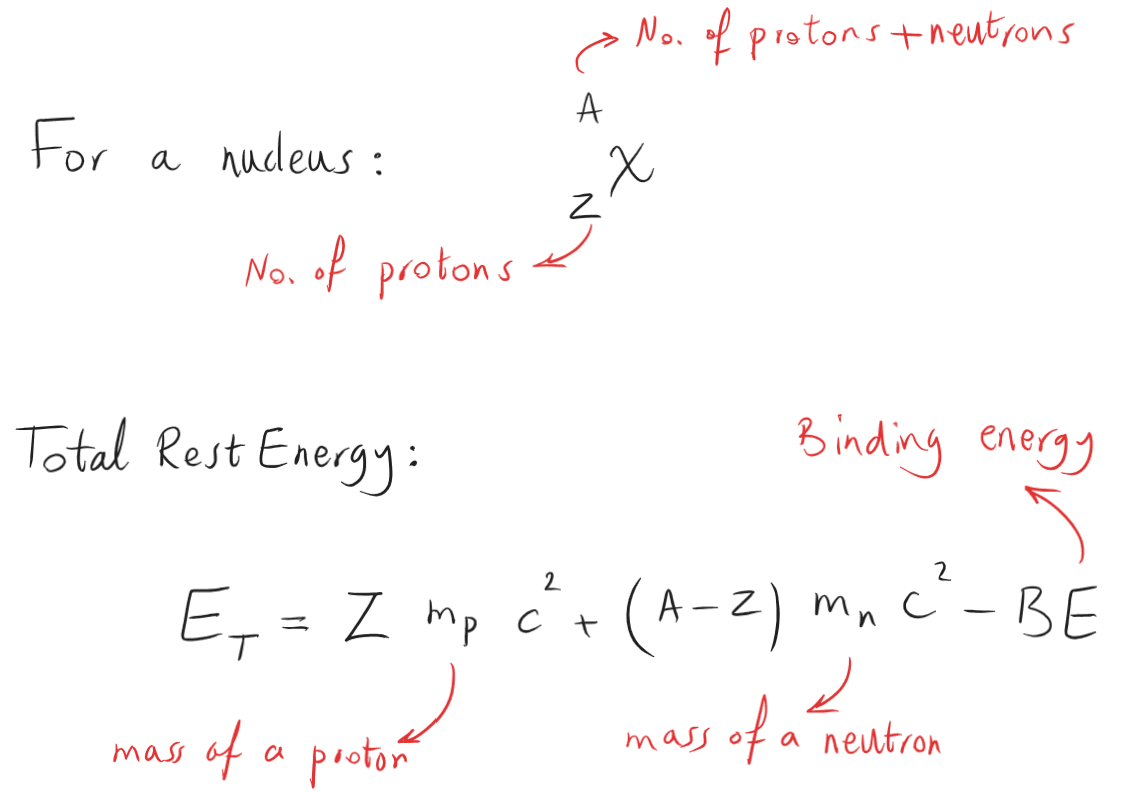 No. of protons + neutrons
A
For a nucleus: X
Z
No. of protons
Total Rest Energy:
Binding energy
E_T = Z m_p c^2 + (A - Z) m_n c^2 - BE
mass of a proton
mass of a neutron